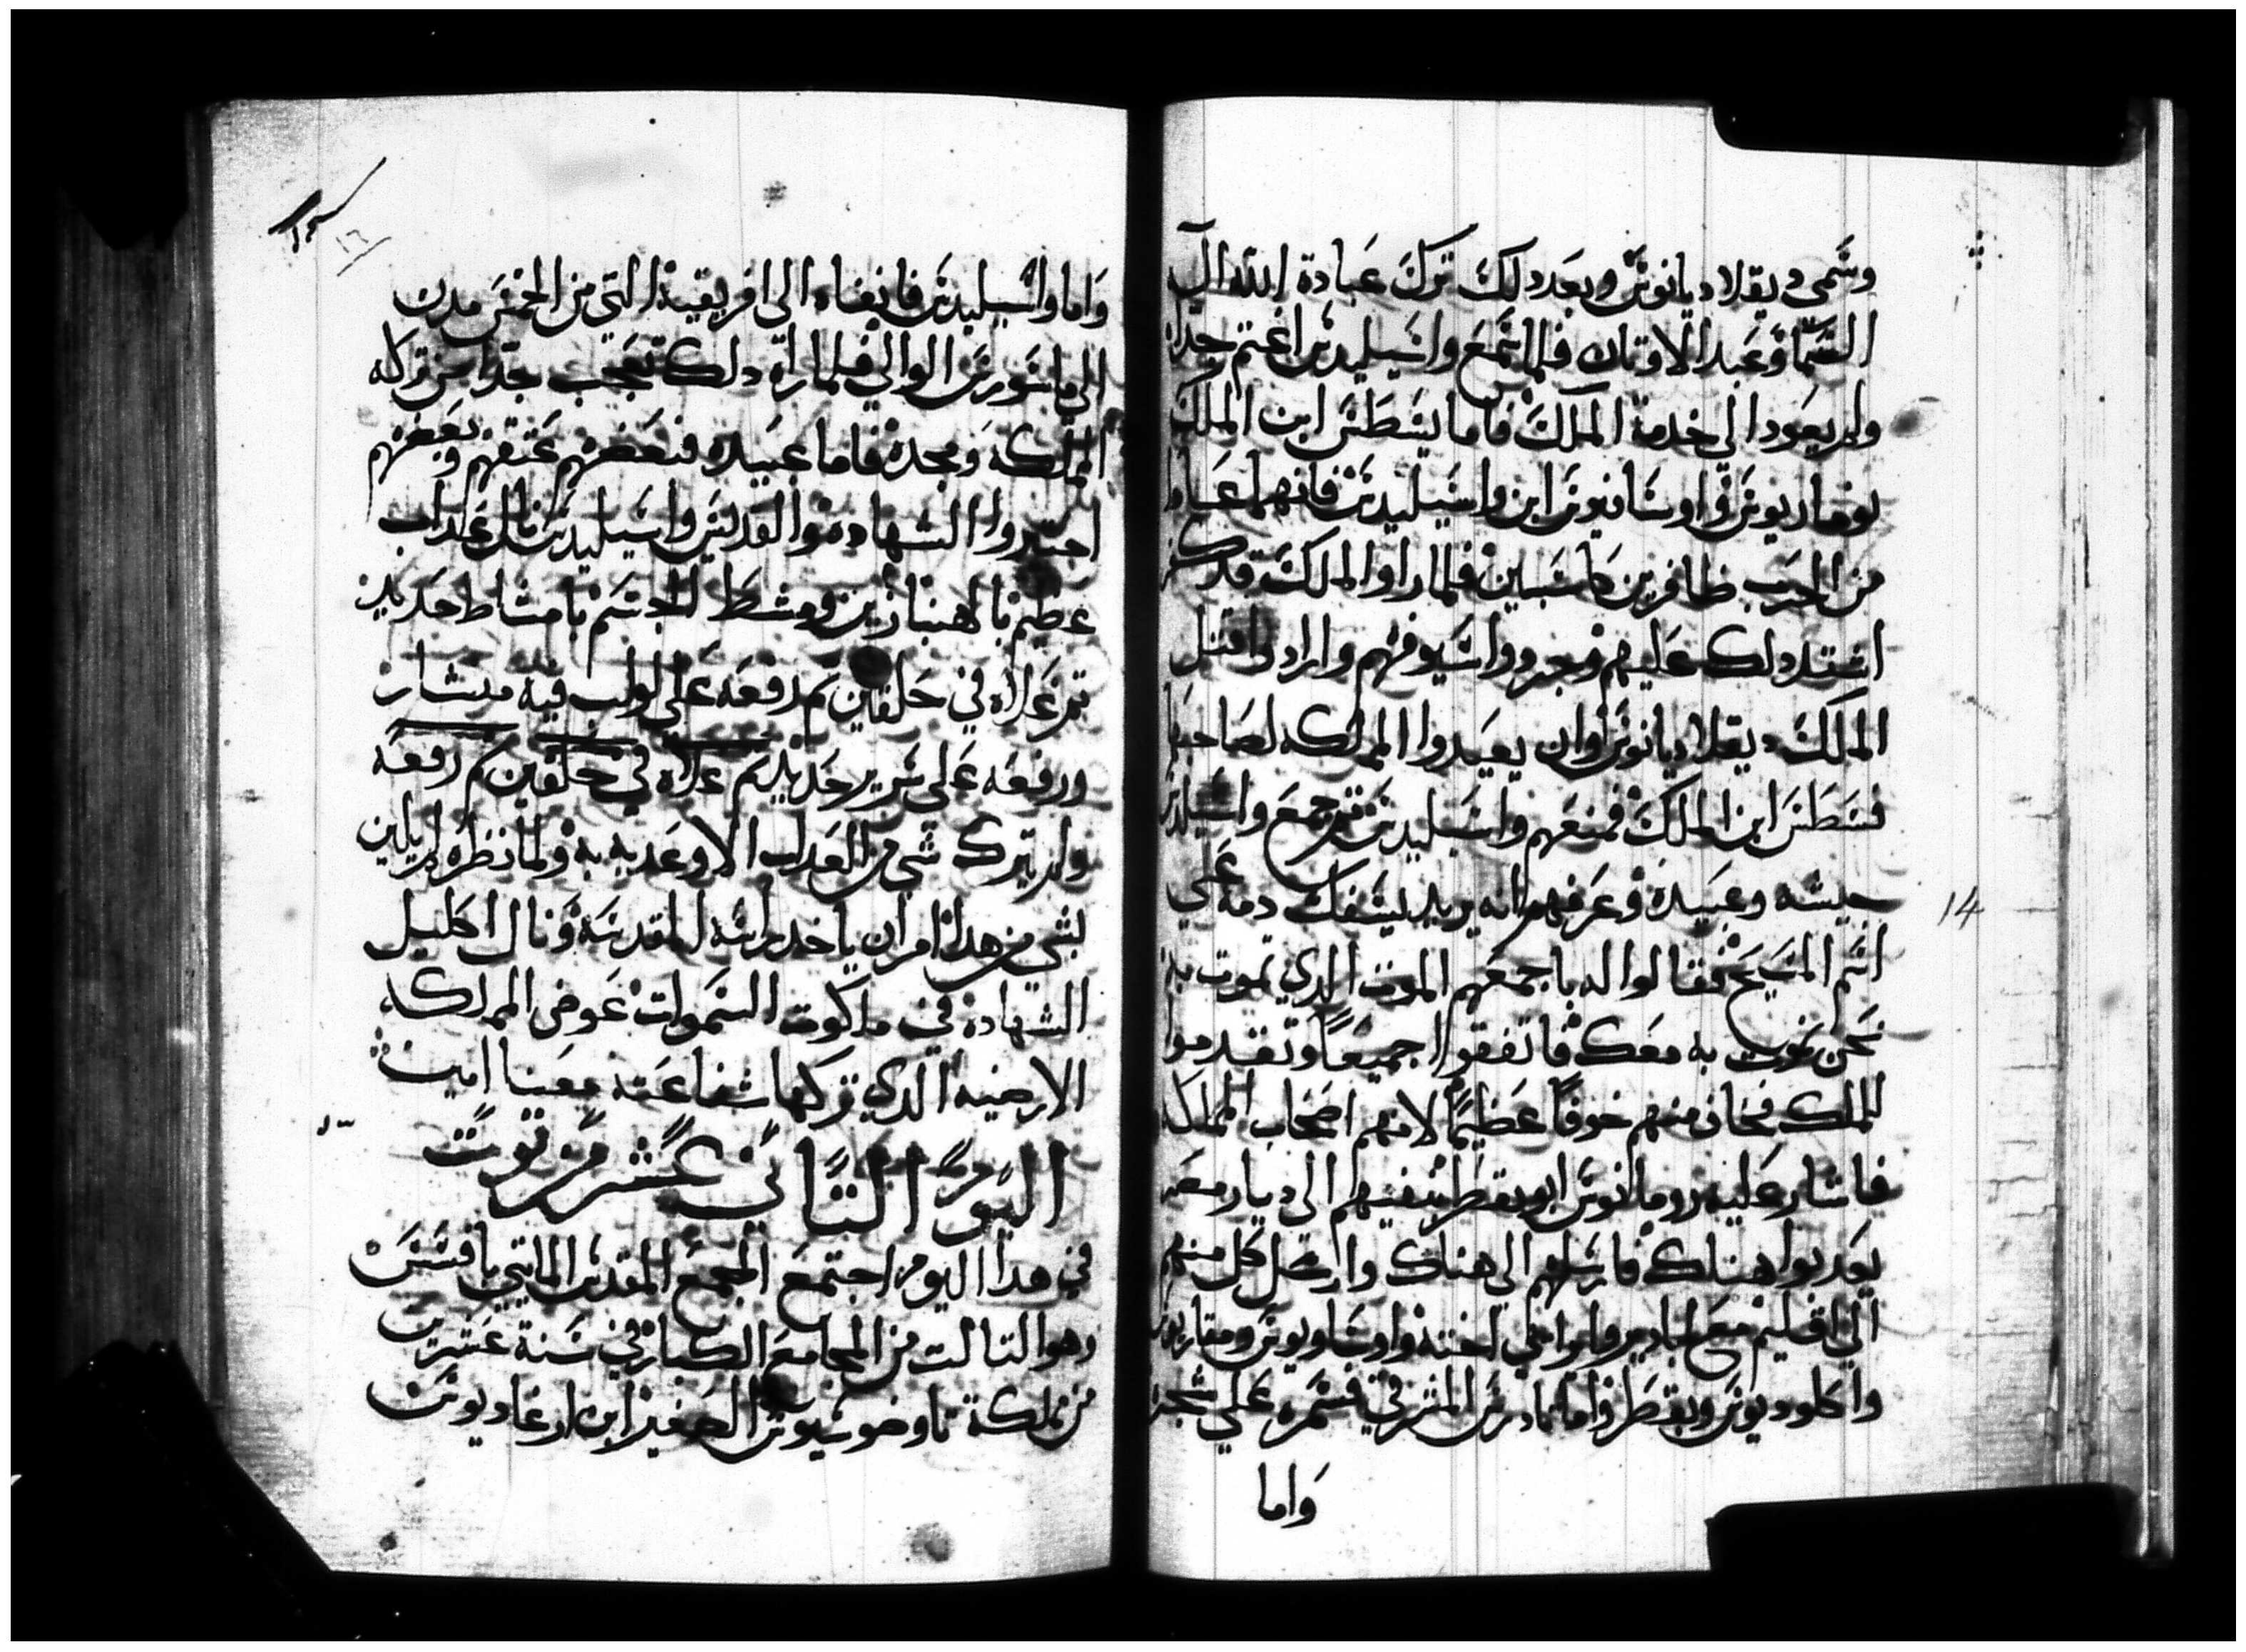 وسمى ديقلاديانوس وبعد دلك ترك عبادة الله اله
السما وعبد الاوتان فلما سمع واسيليدس اغتم جدا
ولم يعود الى خدمة الملك فاما يسطس ابن الملك
نوماريوس واوسانيوس ابن واسيليدس فانهما عادا
من الحرب ظافرين كاسبين فلما راوا الملك قد كفر
اشتد دلك عليهم وجردوا سيوفهم وارادوا قتل
الملك ديقلاديانوس وان يعيدوا المملكه لصاحبها
يسطس ابن الملك فمنعهم واسيليدس تم جمع واسيليدس
جيشه وعبيده وعرفهم انه يريد يسفك دمه على
اسم المسيح فقالوا له باجمعهم الموت الدي تموت به
نحن نموت به معك فاتفقوا جميعا وتقدموا
للملك فخاف منهم خوفا عظيما لانهم اصحاب المملكه
فاشار عليه رومانوس ابو بقطر بنفيهم الى ديار مصر
يعدبوا هناك فارسلهم الى هناك وارسل كل منهم
الى اقليم مع ابادير وايرائي اخته واوسانيوس ومقاريوس
واكلوديوس وبقطر واما تادرس المشرقي فسمره على شجره
واما
واما واسيليدس فانفاه الى افريقية التي من الخمس مدن
الى ماسورس الوالي فلما راه دلك تعجب جدا من تركه
المملكه ومجده فاما عبيده فبعضهم عتقهم وبعضهم
اختيروا الشهاده والقديس واسيليدس نال عداب
عظيم بالهنبازين ومشط الجسم بامشاط حديد
تم غلاه في حلقين تم رفعه على لولب فيه منشار
ورفعه على سرير حديد تم غلاه في حلقين تم رفعه
ولم يترك شي من العداب الا وعدبه به ولما نظره لم يلين
لشي من هدا امر ان ياخد راسه المقدسه ونال اكليل
الشهاده في ملكوت السموات عوض المملكه
الارضيه الدي تركها شفاعته معنا امين
اليوم التاني عشر من توت
في هدا اليوم اجتمع المجمع المقدس المايتي بافسس
وهو التالت من المجامع الكبار في سنة عشرين
من مملكة تاوضوسيوس الصغير ابن ارغاديوس
14